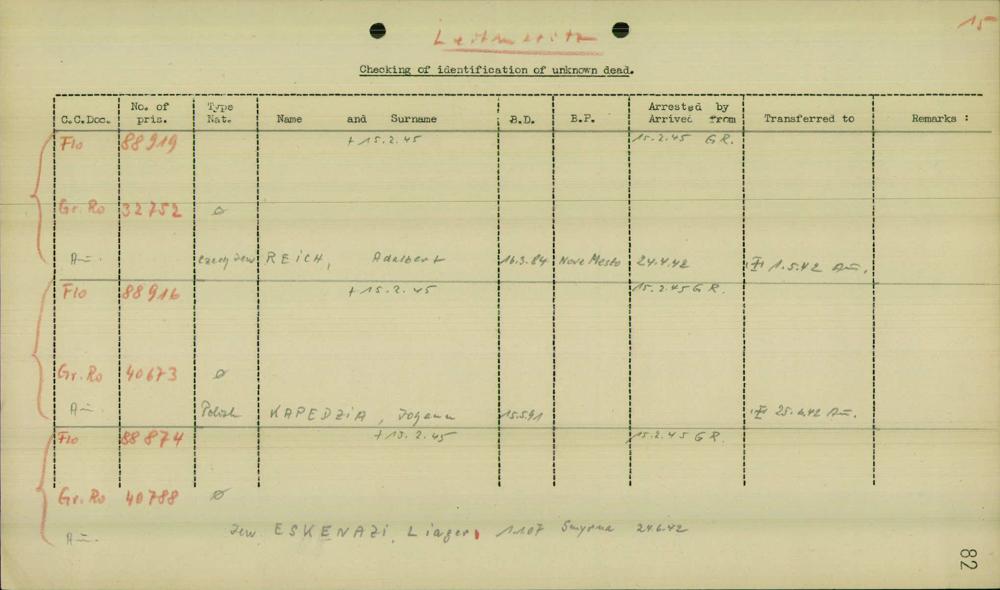 15
Leitmeritz
Checking of identification of unknown dead.
C.C.Doc. No. of pris. Type Nat. Name and Surname B.D. B.P. Arrested by Arrived from Transferred to Remarks :
Flo 88919 + 15.2.45 15.2.45 G R.
Gr. Ro 32752 ø
Au. czech Jew REICH, Adalbert 16.3.84 Nove Mesto 24.4.42 1.5.42 Au.
Flo 88916 + 15.2.45 15.2.45 G R.
Gr. Ro 40673 ø
Au. Polish KAPEDZIA, Johann 15.5.91 25.6.42 Au.
Flo 88874 + 13.2.45 15.2.45 G R.
Gr. Ro 40788 ø
Au. Jew ESKENAZI, 1.1.07 Smyrna 24.6.42
82